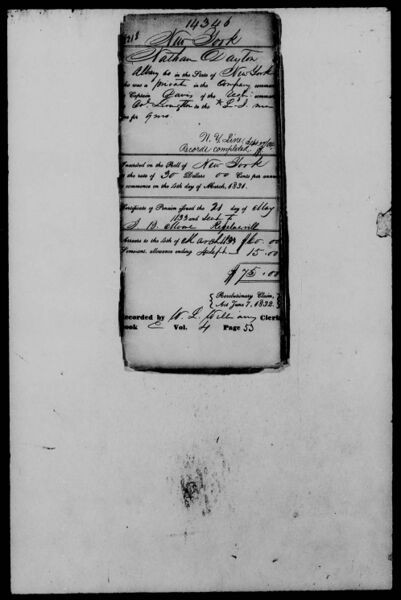 14346
New York
Nathan Dayton
Albany Co in the State of New York
who was a private in the Company comman
Captain Davis of the Regt comman
Col. Livingston in the N.Y. 
for 9 mo
N. Y. Line
Records completed
Inscribed on the Roll of New York
at the rate of 30 Dollars 00 Cents per annum
to commence on the 4th day of March, 1831.
Certificate of Pension issued the 21 day of May
1833 and sent to
J. B.
Arrears to the 4th of March 1833 $60.00
Semi-ann. allowance ending 4 Sept 15.00
$75.00
Revolutionary Claim,
Act June 7, 1832.
Recorded by W. L. Williams Clerk
Book E Vol. 4 Page 53